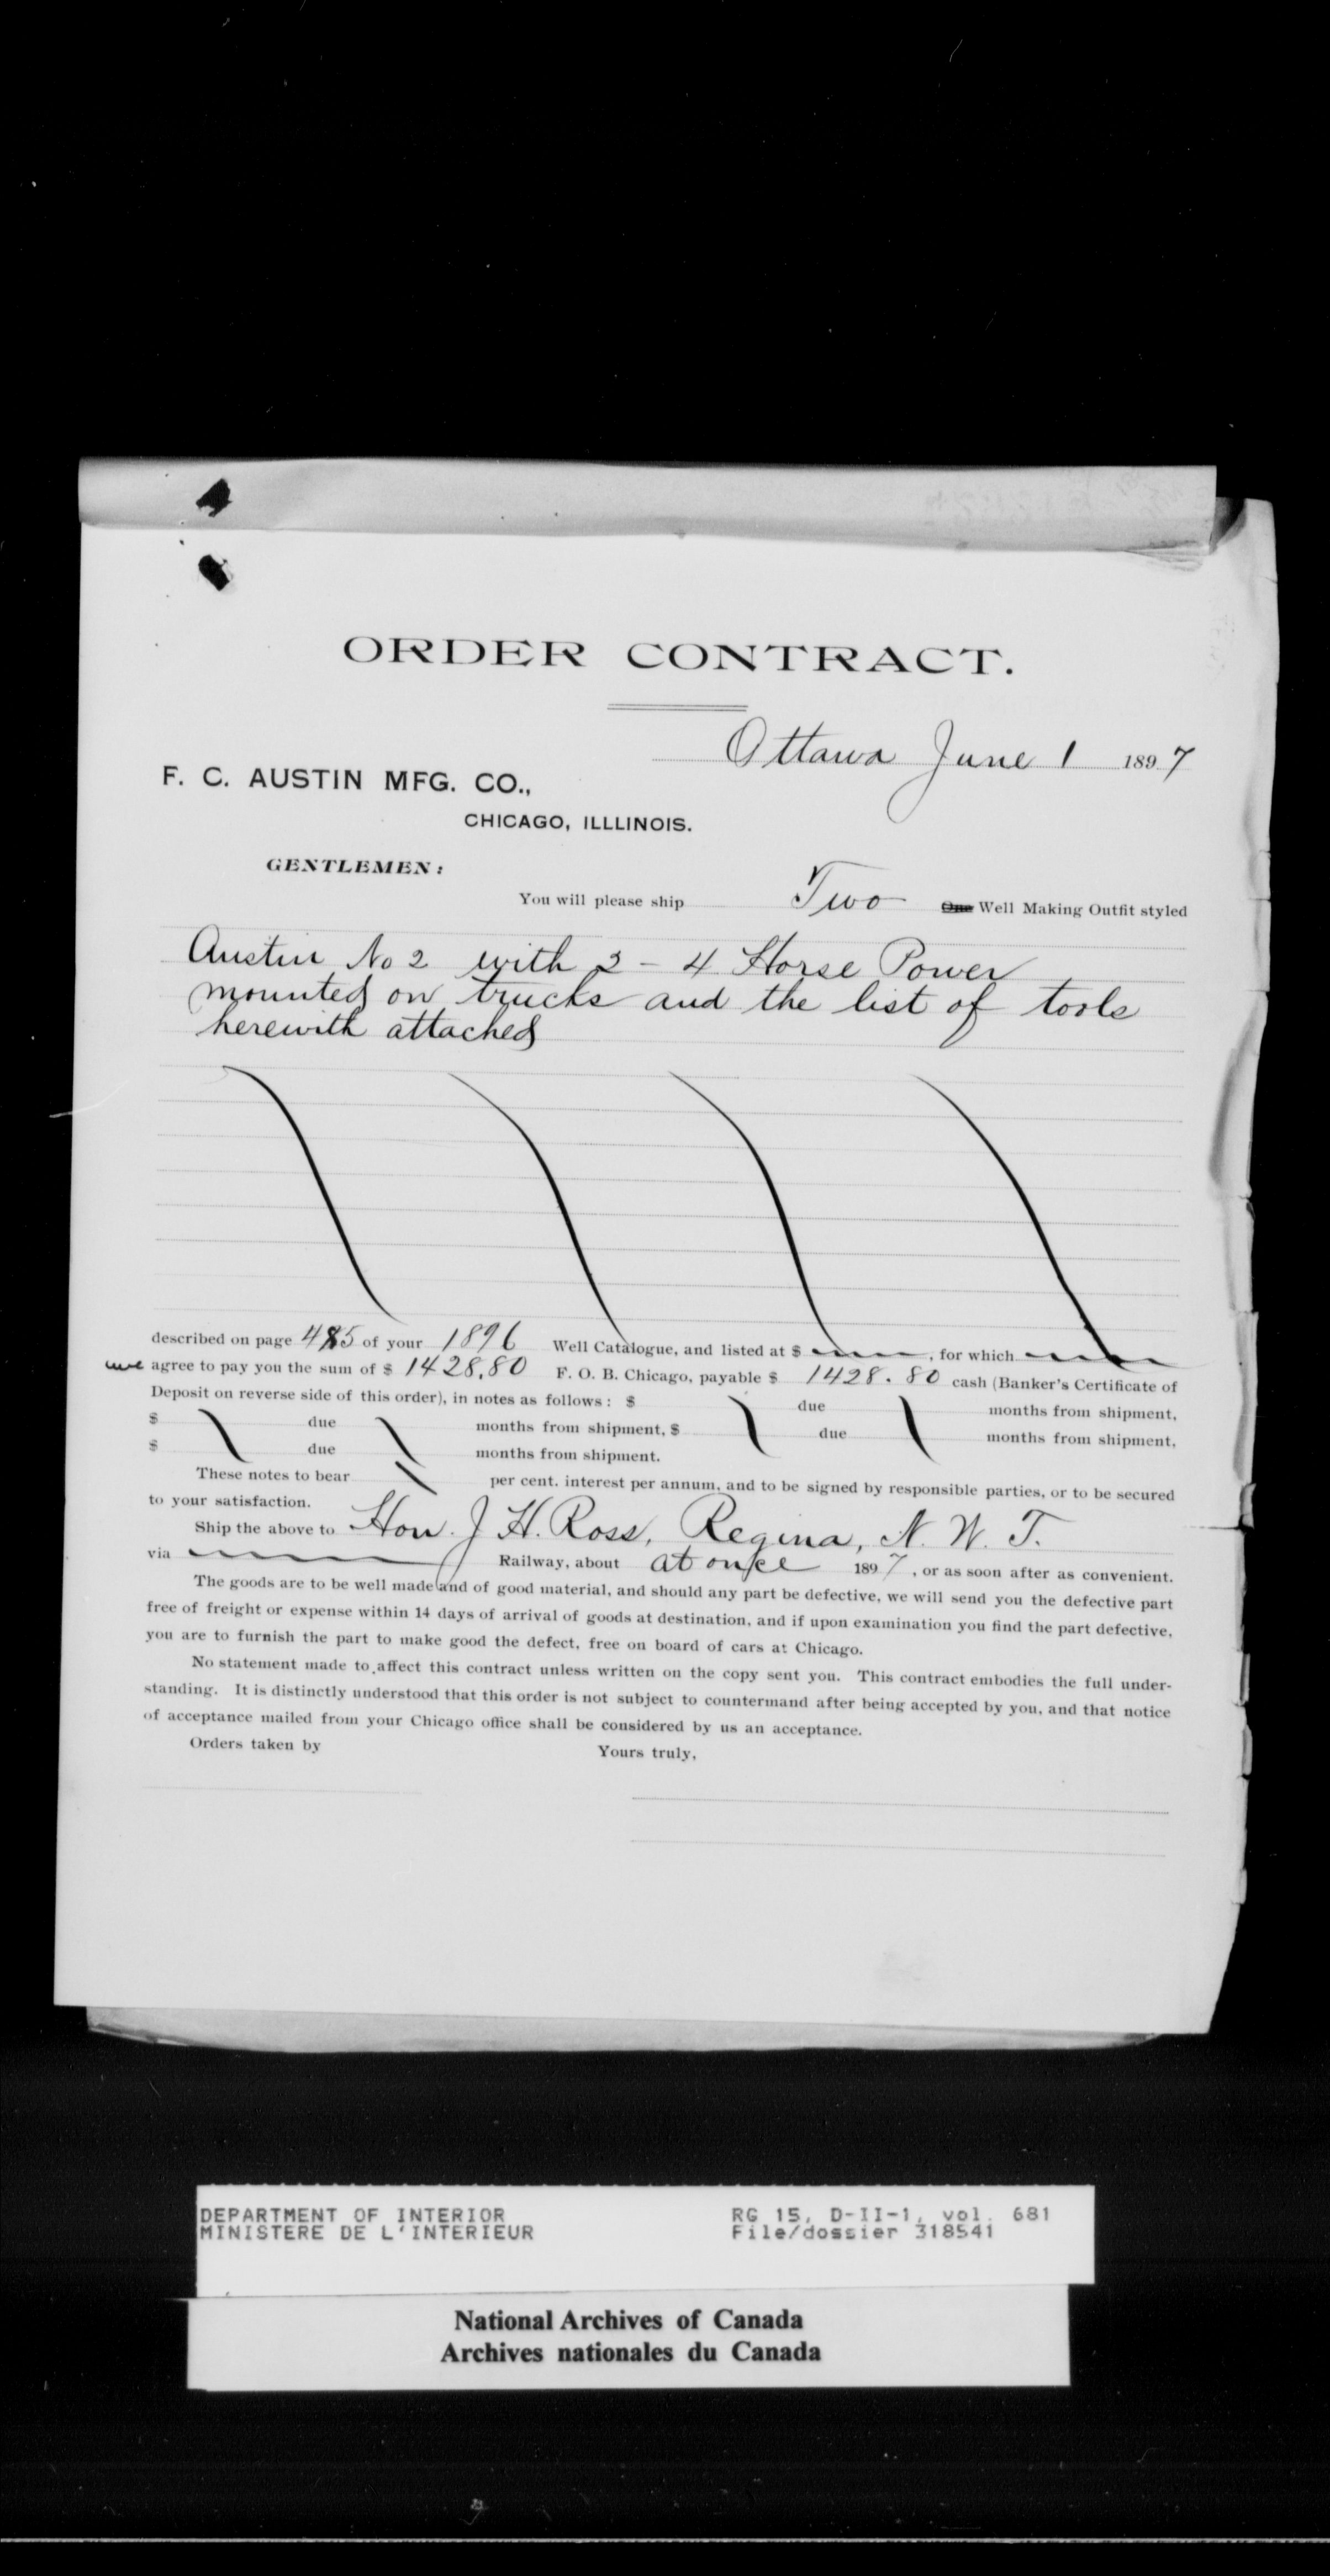 ORDER CONTRACT.
Ottawa June 1 1897
F. C. AUSTIN MFG. CO.,
CHICAGO, ILLLINOIS.
GENTLEMEN:
You will please ship Two One Well Making Outfit styled
Austin No 2 with 2 - 4 Horse Power
mounted on trucks and the list of tools
herewith attached
described on page 4 & 5 of your 1896 Well Catalogue, and listed at $ , for which
we agree to pay you the sum of $ 1428.80 F. O. B. Chicago, payable $ 1428.80 cash (Banker's Certificate of
Deposit on reverse side of this order), in notes as follows: $ due months from shipment,
$ due months from shipment, $ due months from shipment,
$ due months from shipment.
These notes to bear per cent. interest per annum, and to be signed by responsible parties, or to be secured
to your satisfaction.
Ship the above to Hon. J H. Ross, Regina, N. W. T.
via Railway, about at once 1897, or as soon after as convenient.
The goods are to be well made and of good material, and should any part be defective, we will send you the defective part
free of freight or expense within 14 days of arrival of goods at destination, and if upon examination you find the part defective,
you are to furnish the part to make good the defect, free on board of cars at Chicago.
No statement made to affect this contract unless written on the copy sent you. This contract embodies the full under-
standing. It is distinctly understood that this order is not subject to countermand after being accepted by you, and that notice
of acceptance mailed from your Chicago office shall be considered by us an acceptance.
Orders taken by Yours truly,
DEPARTMENT OF INTERIOR RG 15, D-II-1, vol. 681
MINISTERE DE L'INTERIEUR File/dossier 318541
National Archives of Canada
Archives nationales du Canada